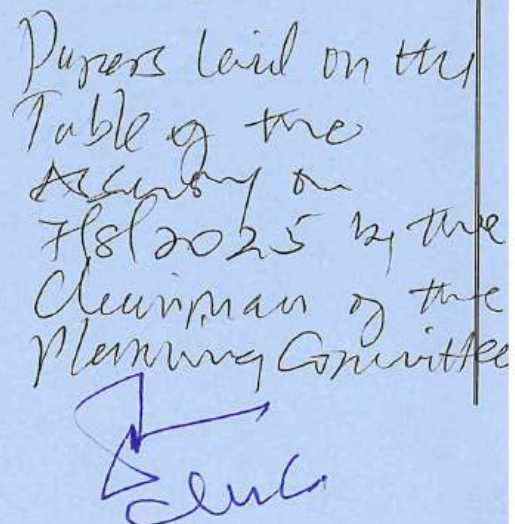 Papers laid on the
Table of the
Assembly on
7/8/2025 by the
Chairman of the
Planning Committee
Clerk